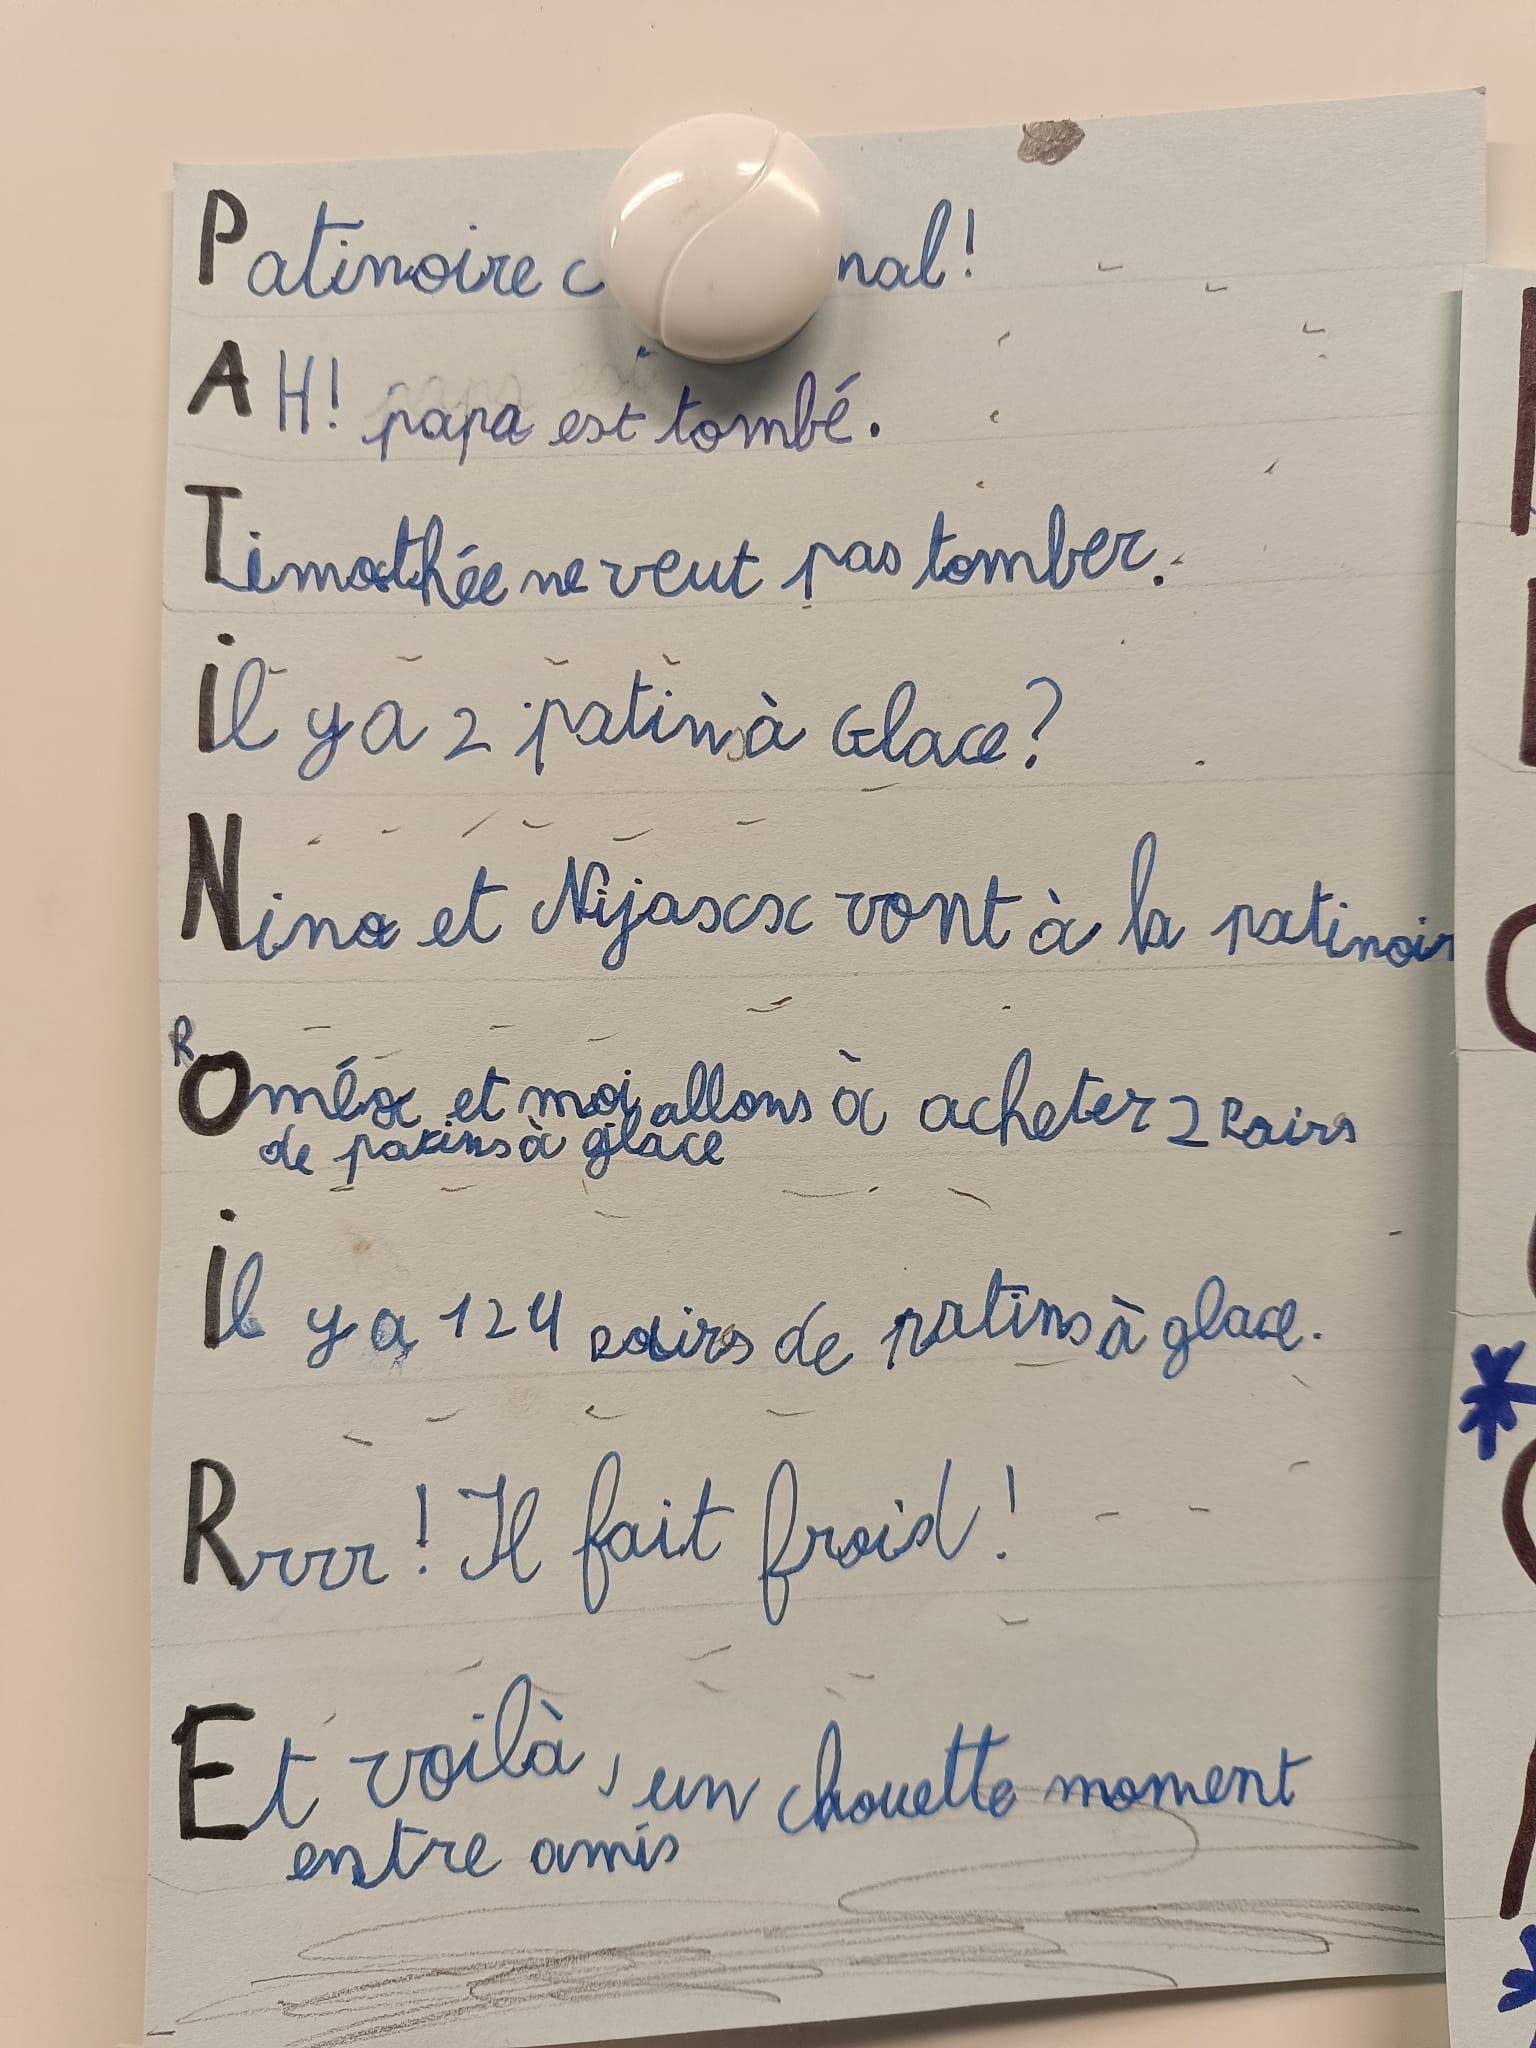 Patinoire c nal!
AH! papa est tombé.
Timothée ne veut pas tomber.
il y a 2 patins à Glace?
Nina et vont à la patinoir
Roméo et moi allons à acheter 2 Pairs
de patins à glace
il y a 124 pairs de patins à glace.
Rrrrr! Il fait froid!
Et voilà, un chouette moment
entre amis